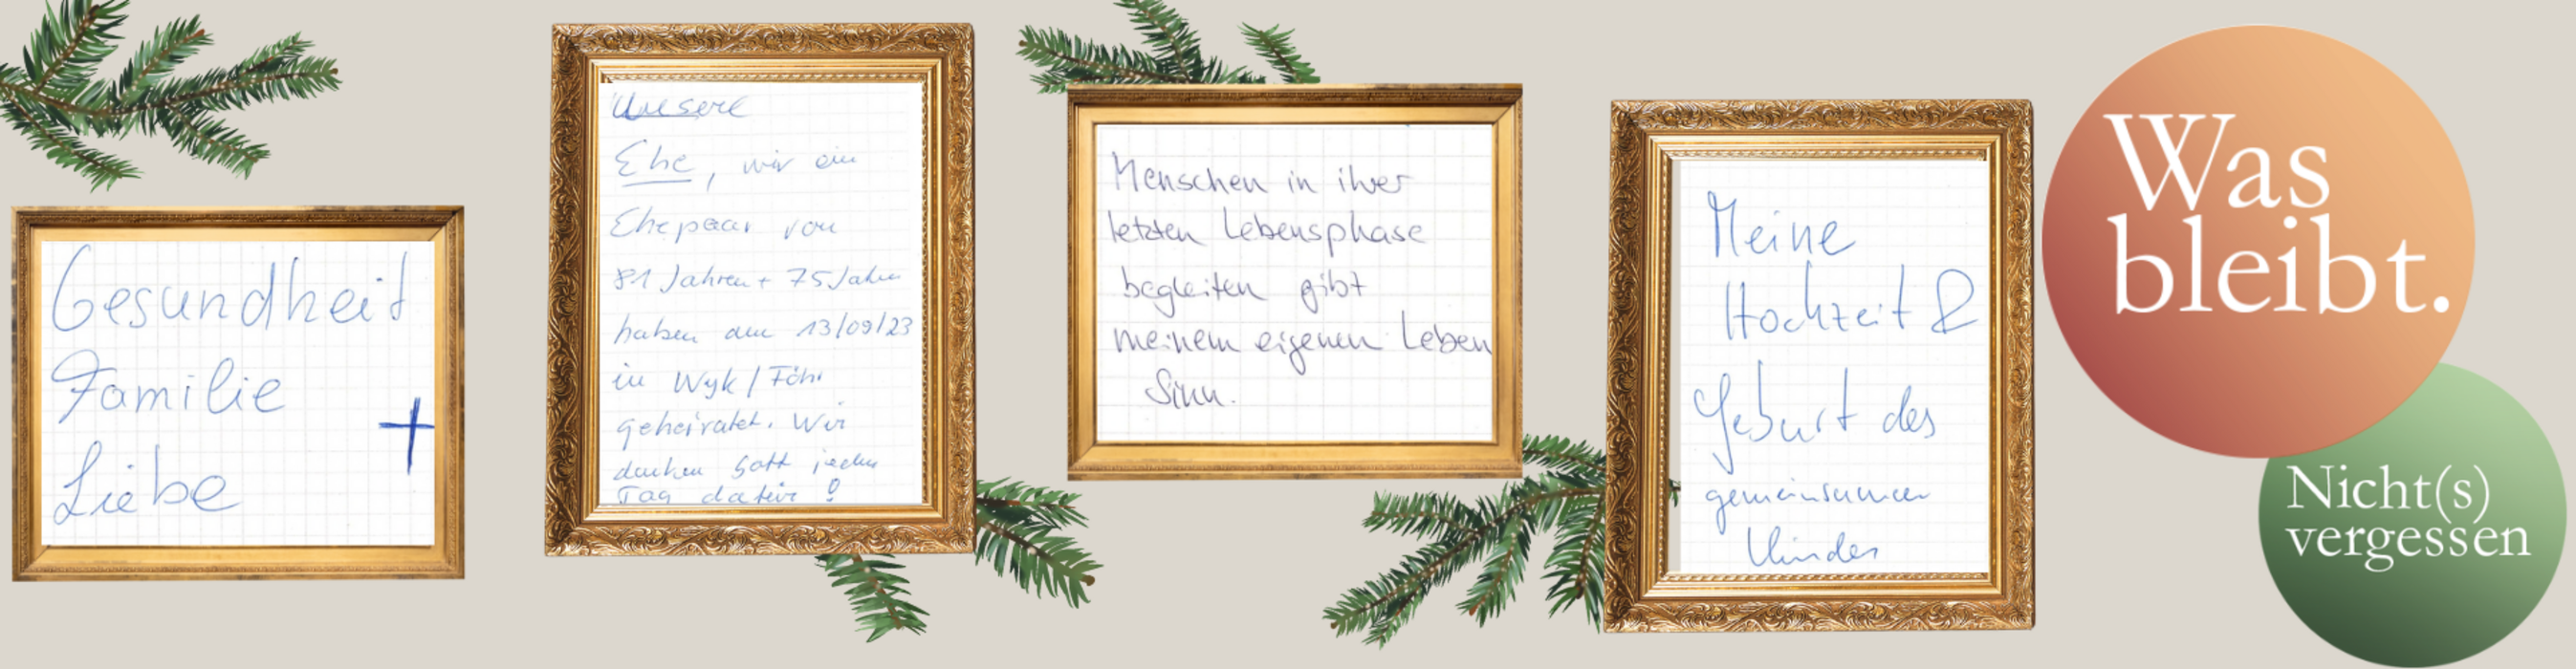 Gesundheit
Familie
Liebe
+
Unsere
Ehe, wir ein
Ehepaar von
81 Jahren + 75 Jahren
haben am 13/09/23
in Wyk / Föhr
geheiratet. Wir
danken Gott jeden
Tag dafür !
Menschen in ihrer
letzten Lebensphase
begleiten gibt
meinem eigenen Leben
Sinn.
Meine
Hochzeit &
Geburt des
gemeinsamen
Kindes
Was
bleibt.
Nicht(s)
vergessen